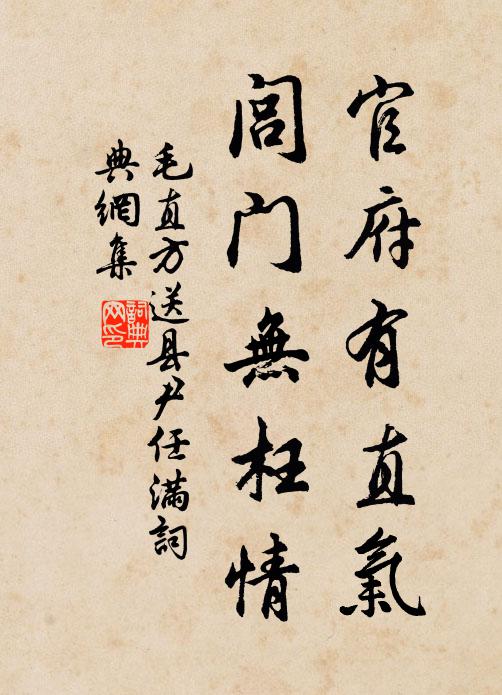 官府有直氣
閭門無枉情
毛直方送县尹任满詞
典網集
詞典网印